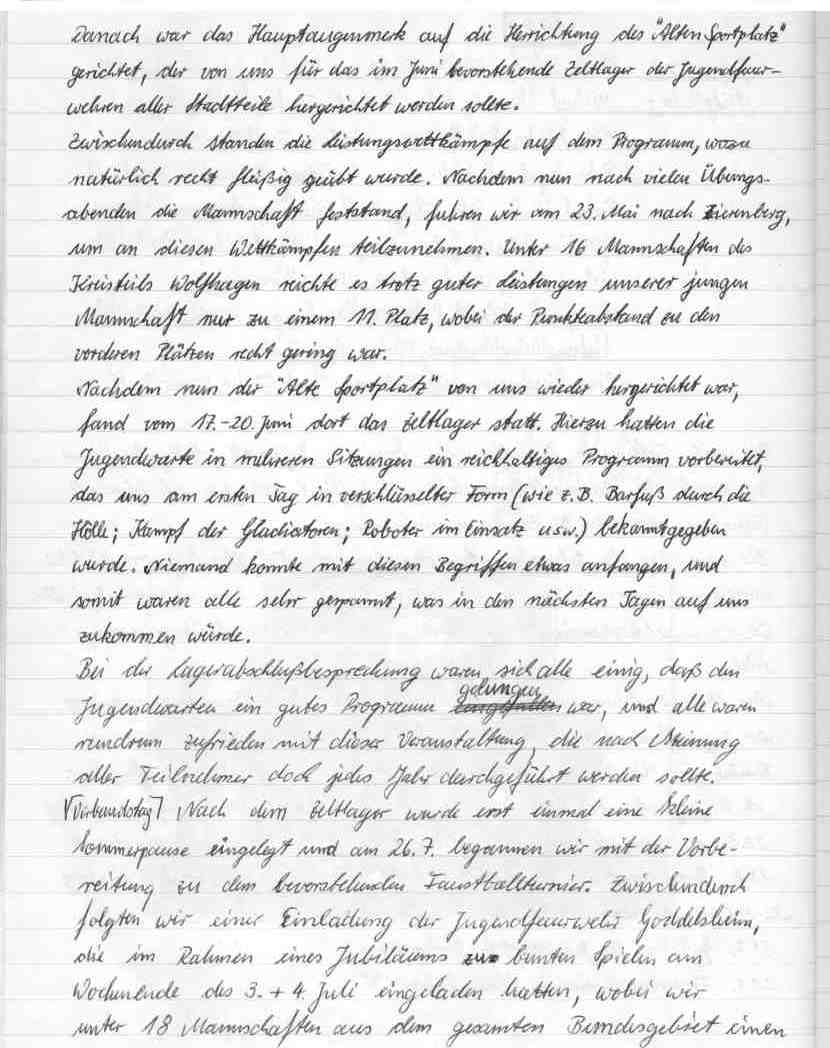 Danach war das Hauptaugenmerk auf die Herrichtung des "Alten Sportplatz"
gerichtet, der von uns für das im Juni bevorstehende Zeltlager der Jugendfeuer-
wehren aller Stadtteile hergerichtet werden sollte.
Zwischendurch standen die Leistungswettkämpfe auf dem Programm, wozu
natürlich recht fleißig geübt wurde. Nachdem nun nach vielen Übungs-
abenden die Mannschaft feststand, fuhren wir vom 23. Mai nach Zierenberg,
um an diesen Wettkämpfen teilzunehmen. Unter 16 Mannschaften des
Kreisteils Wolfhagen reichte es trotz guter Leistungen unserer jungen
Mannschaft nur zu einem 11. Platz, wobei der Punkteabstand zu den
vorderen Plätzen recht gering war.
Nachdem nun der "Alte Sportplatz" von uns wieder hergerichtet war,
fand vom 17.-20. Juni dort das Zeltlager statt. Hierzu hatten die
Jugendwarte in mehreren Sitzungen ein reichhaltiges Programm vorbereitet,
das uns am ersten Tag in verschlüsselter Form (wie z.B. Barfuß durch die
Hölle; Kampf der Gladiatoren; Roboter im Einsatz usw.) bekanntgegeben
wurde. Niemand konnte mit diesen Begriffen etwas anfangen, und
somit waren alle sehr gespannt, was in den nächsten Tagen auf uns
zukommen würde.
Bei der Lagerabschlußbesprechung waren sich alle einig, daß den
Jugendwarten ein gutes Programm gelungen war, und alle waren
rundrum zufrieden mit dieser Veranstaltung, die nach Meinung
aller Teilnehmer doch jedes Jahr durchgeführt werden sollte.
[Verbandstag] Nach dem Zeltlager wurde erst einmal eine kleine
Sommerpause eingelegt und am 26.7. begannen wir mit der Vorbe-
reitung zu dem bevorstehenden Faustballturnier. Zwischendurch
folgten wir einer Einladung der Jugendfeuerwehr Goddelsheim,
die im Rahmen eines Jubiläums zu bunten Spielen am
Wochenende des 3. + 4. Juli eingeladen hatten, wobei wir
unter 18 Mannschaften aus dem gesamten Bundesgebiet einen